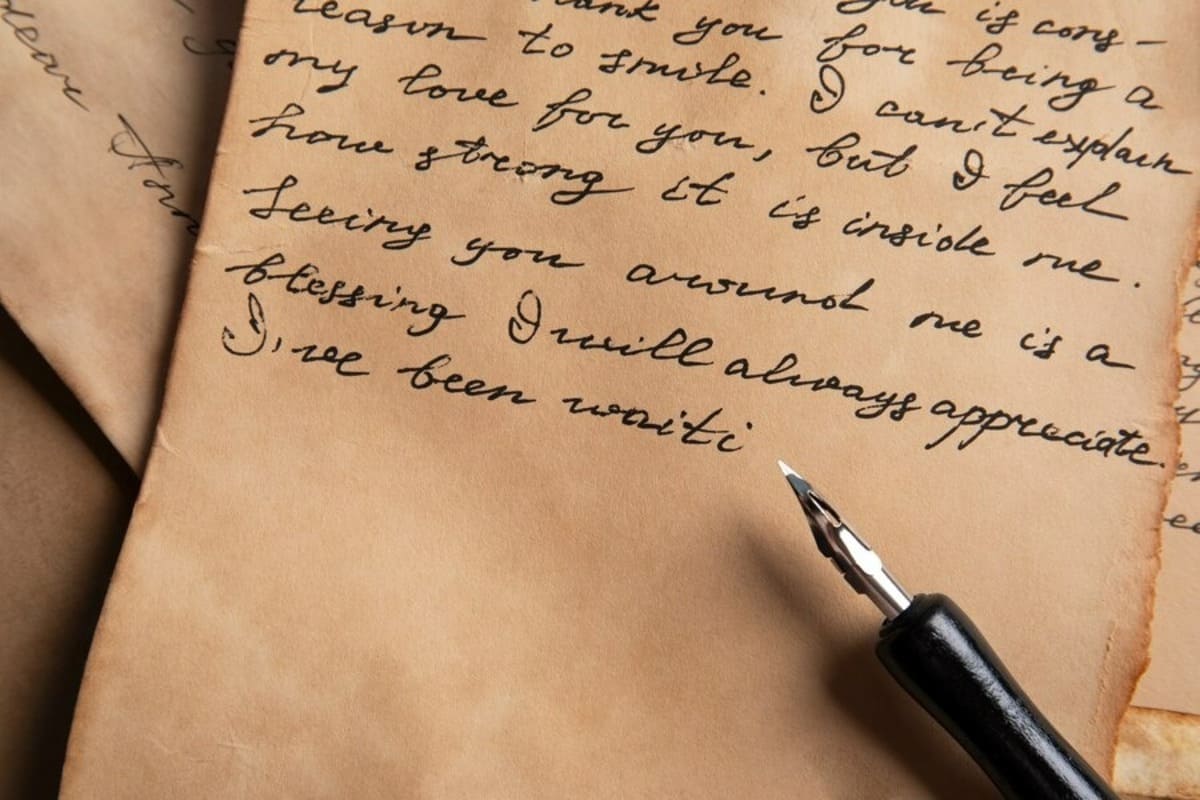 you is cons-
you for being a
reason to smile. I can't explain
my love for you, but I feel
how strong it is inside me.
Seeing you around me is a
blessing I will always appreciate.
I've been waiti
dear